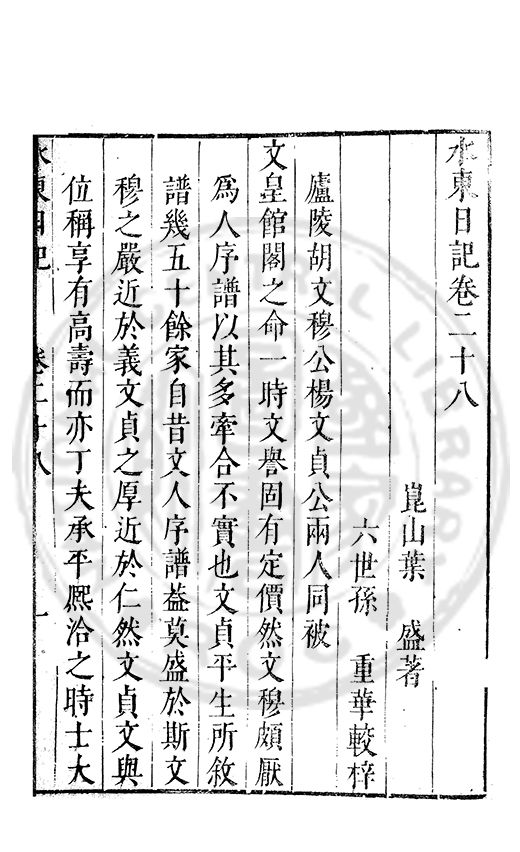 水東日記卷二十八
崑山葉　盛著
六世孫　重華較梓
廬陵胡文穆公楊文貞公兩人同被
文皇館閣之命一時文譽固有定價然文穆頗厭
爲人序譜以其多牽合不實也文貞平生所敘
譜幾五十餘家自昔文人序譜葢莫盛於斯文
穆之嚴近於義文貞之厚近於仁然文貞文與
位稱享有高壽而亦丁夫承平熈洽之時士大
水東日記　卷二十八　一